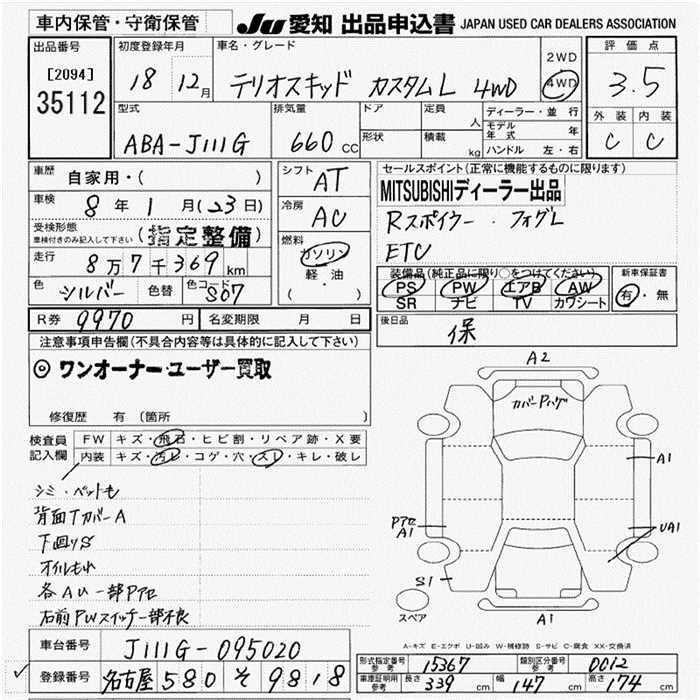 車内保管・守衛保管
JU 愛知 出品申込書 JAPAN USED CAR DEALERS ASSOCIATION
出品番号
[2094]
35112
初度登録年月
18 12月
車名・グレード
テリオスキッド カスタムL 4WD
2WD
4WD
評価点
3.5
外装 内装
C C
型式
ABA-J111G
排気量
660 cc
ドア
形状
定員
人
積載
kg
ディーラー・並行
モデル年式 年
ハンドル 左・右
車歴
自家用・( )
車検
8年 1月(23日)
受検形態
車検付きのみ記入して下さい
(指定整備)
走行
8万7千369km
色
シルバー
色替
色コード
S07
シフト
AT
冷房
AC
燃料
ガソリン
軽・油
( ・ )
セールスポイント(正常に機能するものに限ります)
MITSUBISHIディーラー出品
Rスポイラー・フォグL
ETC
装備品(純正品に限り○をつけてください)
PS PW エアB AW
SR ナビ TV カワシート
新車保証書
有・無
R券 9970 円
名変期限 月 日
後日品
保
注意事項申告欄(不具合内容等は具体的に記入して下さい)
◎ ワンオーナー・ユーザー買取
修復歴 有 (箇所 )
検査員
記入欄
FW キズ・飛石・ヒビ割・リペア跡・X要
内装 キズ・汚レ・コゲ・穴・スレ・キレ・破レ
シミ・ペット毛
背面TカバーA
下廻りS
オイルもれ
各AU一部Pアセ
右前PWスイッチ一部不良
A2
カバーPハゲ
A1
Pアセ
A1
UA1
S1
スペア
A1
A-キズ E-エクボ U-凹み W-補修跡 S-サビ C-腐食 XX-交換済
車台番号
J111G-095020
登録番号
名古屋 580 そ 9818
形式指定番号
参考
15367
類別区分番号
参考
0012
車庫証明用
参考
長さ 339 cm
幅 147 cm
高さ 174 cm